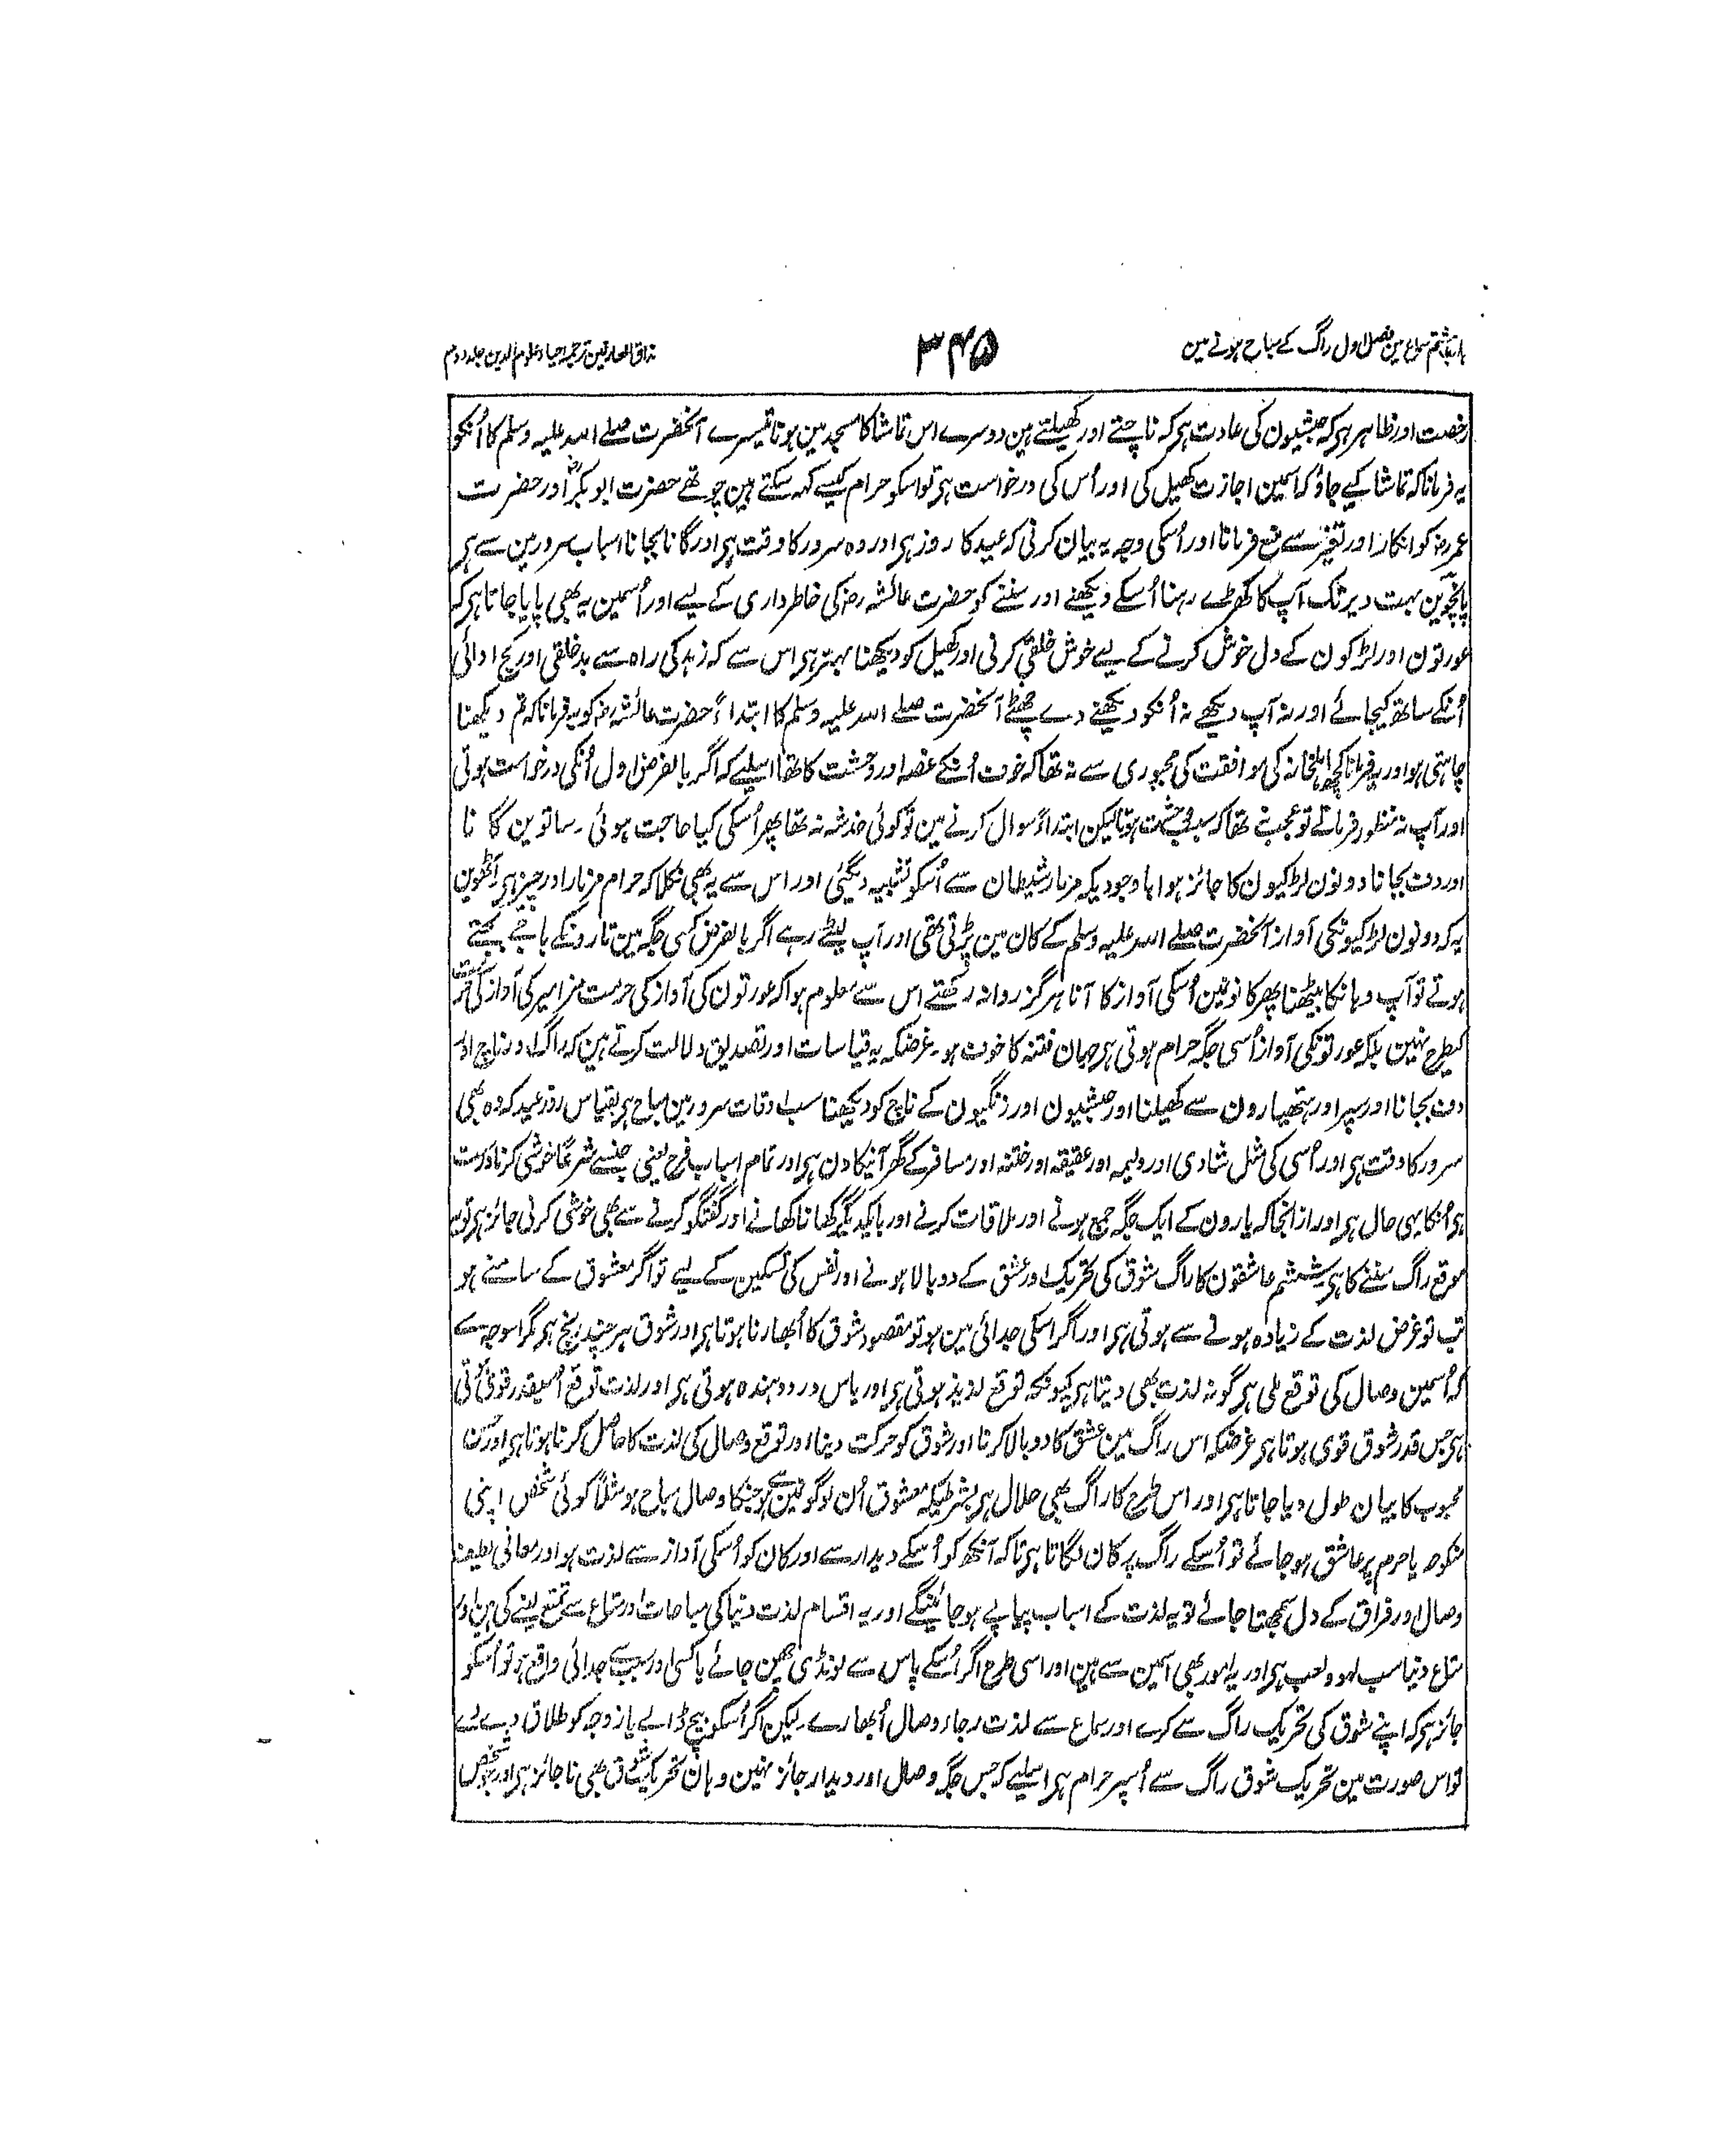 باب ہشتم سماع مین فصل اول راگ کے مباح ہونے مین
۳۴۵
مذاق العارفین ترجمہ احیاء علوم الدین جلد دوم
رخصت اور ظاہر ہی کہ حبشیون کی عادت ہی کہ ناچتے اور کھیلتے ہین دوسرے اس تماشا کا مسجد مین ہونا تیسرے آنحضرت صلے اللہ علیہ وسلم کا اُنکو
یہ فرمانا کہ تماشا کیے جاؤ کہ اسمین اجازت کھیل کی اور اُس کی درخواست ہی تو اسکو حرام کیسے کہہ سکتے ہین چوتھے حضرت ابو بکرؓ اور حضرت
عمر رض کو انکار اور تغیر سے منع فرمانا اور اُسکی وجہ یہ بیان کرنی کہ عید کا روز ہی اور وہ سرور کا وقت ہی اور گانا بجانا اسباب سرور مین سے ہی
پانچوین بہت دیر تک آپ کا کھڑے رہنا اُسکے دیکھنے اور سننے کو حضرت عائشہ رض کی خاطرداری کے لیے اور اُسمین یہ بھی پایا جاتا ہی کہ
عورتون اور لڑکون کے دل خوش کرنے کے لیے خوش خلقی کرنی اور کھیل کو دیکھنا بہتر ہی اس سے کہ زہد کی راہ سے بد خلقی اور کج ادائی
اُنکے ساتھ کیجائے اور نہ آپ دیکھے نہ اُنکو دیکھنے دے چھٹے آنحضرت صلے اللہ علیہ وسلم کا ابتداءً حضرت عائشہ رض کو یہ فرمانا کہ تم دیکھنا
چاہتی ہو اور یہ فرمانا کچھ اہلخانہ کی موافقت کی مجبوری سے نہ تھا کہ خوف اُنکے غصہ اور وحشت کا تھا اسلیے کہ اگر بالفرض اول اُنکی درخواست ہوتی
اور آپ نہ منظور فرماتے تو عجب نہ تھا کہ سبب وحشت ہوتا لیکن ابتداءً سوال کرنے مین تو کوئی خدشہ نہ تھا پھر اُسکی کیا حاجت ہوئی ۔ ساتوین گانا
اور دف بجانا دونون لڑکیون کا جائز ہوا باوجودیکہ مزمار شیطان سے اُسکو تشبیہ دیگئی اور اس سے یہ بھی نکلا کہ حرام مزمار اور چیز ہی آٹھوین
یہ کہ دونون لڑکیونکی آواز آنحضرت صلے اللہ علیہ وسلم کے کان مین پڑتی تھی اور آپ لیٹے رہے اگر بالفرض کسی جگہ مین تارونکے باجے بجتے
ہوتے تو آپ وہانکا بیٹھنا پھر کانونمین اُسکی آواز کا آنا ہرگز روا نہ رکھتے اس سے معلوم ہوا کہ عورتون کی آواز کی حرمت مزامیر کی آواز کی
کیطرح نہین بلکہ عورتونکی آواز اُسی جگہ حرام ہوتی ہی جہان فتنہ کا خوف ہو ۔ غرضکہ یہ قیاسات اور تصدیق دلالت کرتے ہین کہ راگ اور ناچ اور
دف بجانا اور سپر اور ہتھیارون سے کھیلنا اور حبشیون اور زنگیون کے ناچ کو دیکھنا سب اوقات سرور مین مباح ہی بقیاس روز عید کہ وہ بھی
سرور کا وقت ہی اور اُسی کی مثل شادی اور ولیمہ اور عقیقہ اور ختنہ اور مسافر کے گھر آنیکا دن ہی اور تمام اسباب فرح یعنی جنسے شرعًا خوشی کرنا درست
ہی اُنکا یہی حال ہی اور ازانجا کہ یارون کے ایک جگہ جمع ہونے اور ملاقات کرنے اور بایکدیگر کھانا کھانے اور گفتگو کرنے سے بھی خوشی کرنی جائز ہی تو یہ
موقع راگ سننے کا ہی ششم عاشقون کا راگ شوق کی تحریک اور عشق کے دوبالا ہونے اور نفس کی تسکین کے لیے تو اگر معشوق کے سامنے ہو
تب تو غرض لذت کے زیادہ ہونے سے ہوتی ہی اور اگر اسکی جدائی مین ہو تو مقصود شوق کا اُبھارنا ہوتا ہی اور شوق ہر چند رنج ہی مگر اسوجہ سے
کہ اُسمین وصال کی توقع ملی ہی گونہ لذت بھی دیتا ہی کیونکہ توقع لذیذ ہوتی ہی اور یاس درد دہندہ ہوتی ہی اور لذت توقع اُسیقدر قوی ہوتی
ہی جس قدر شوق قوی ہوتا ہی غرضکہ اس راگ مین عشق کا دوبالا کرنا اور شوق کو حرکت دینا اور توقع وصال کی لذت کا حاصل کرنا ہوتا ہی اور حسن
محبوب کا بیان طول دیا جاتا ہی اور اس طرح کا راگ بھی حلال ہی بشرطیکہ معشوق اُن لوگونمین سے ہو جنکا وصال مباح ہو مثلاً کوئی شخص اپنی
منکوحہ یا حرم پر عاشق ہو جائے تو اُسکے راگ پر کان لگاتا ہی تاکہ آنکھ کو اُسکے دیدار سے اور کان کو اُسکی آواز سے لذت ہو اور معانی لطیفہ
وصال اور فراق کے دل سمجھتا جائے تو یہ لذت کے اسباب پیاپے ہو جائینگے اور یہ اقسام لذت دنیا کی مباحات اور متاع سے تمتع لینے کی ہین اور
متاع دنیا سب لہو ولعب ہی اور یہ امور بھی اسمین سے ہین اور اسی طرح اگر اُسکے پاس سے لونڈی چھن جائے یا کسی اور سبب سے جدائی واقع ہو تو اُسکو
جائز ہی کہ اپنے شوق کی تحریک راگ سے کرے اور سماع سے لذت رجاء وصال اُبھارے لیکن اگر اُسکو بیچ ڈالے یا زوجہ کو طلاق دیدے
تو اس صورت مین تحریک شوق راگ سے اُسپر حرام ہی اسلیے کہ جس جگہ وصال اور دیدار جائز نہین وہان تحریک شوق بھی ناجائز ہی اور جو شخص